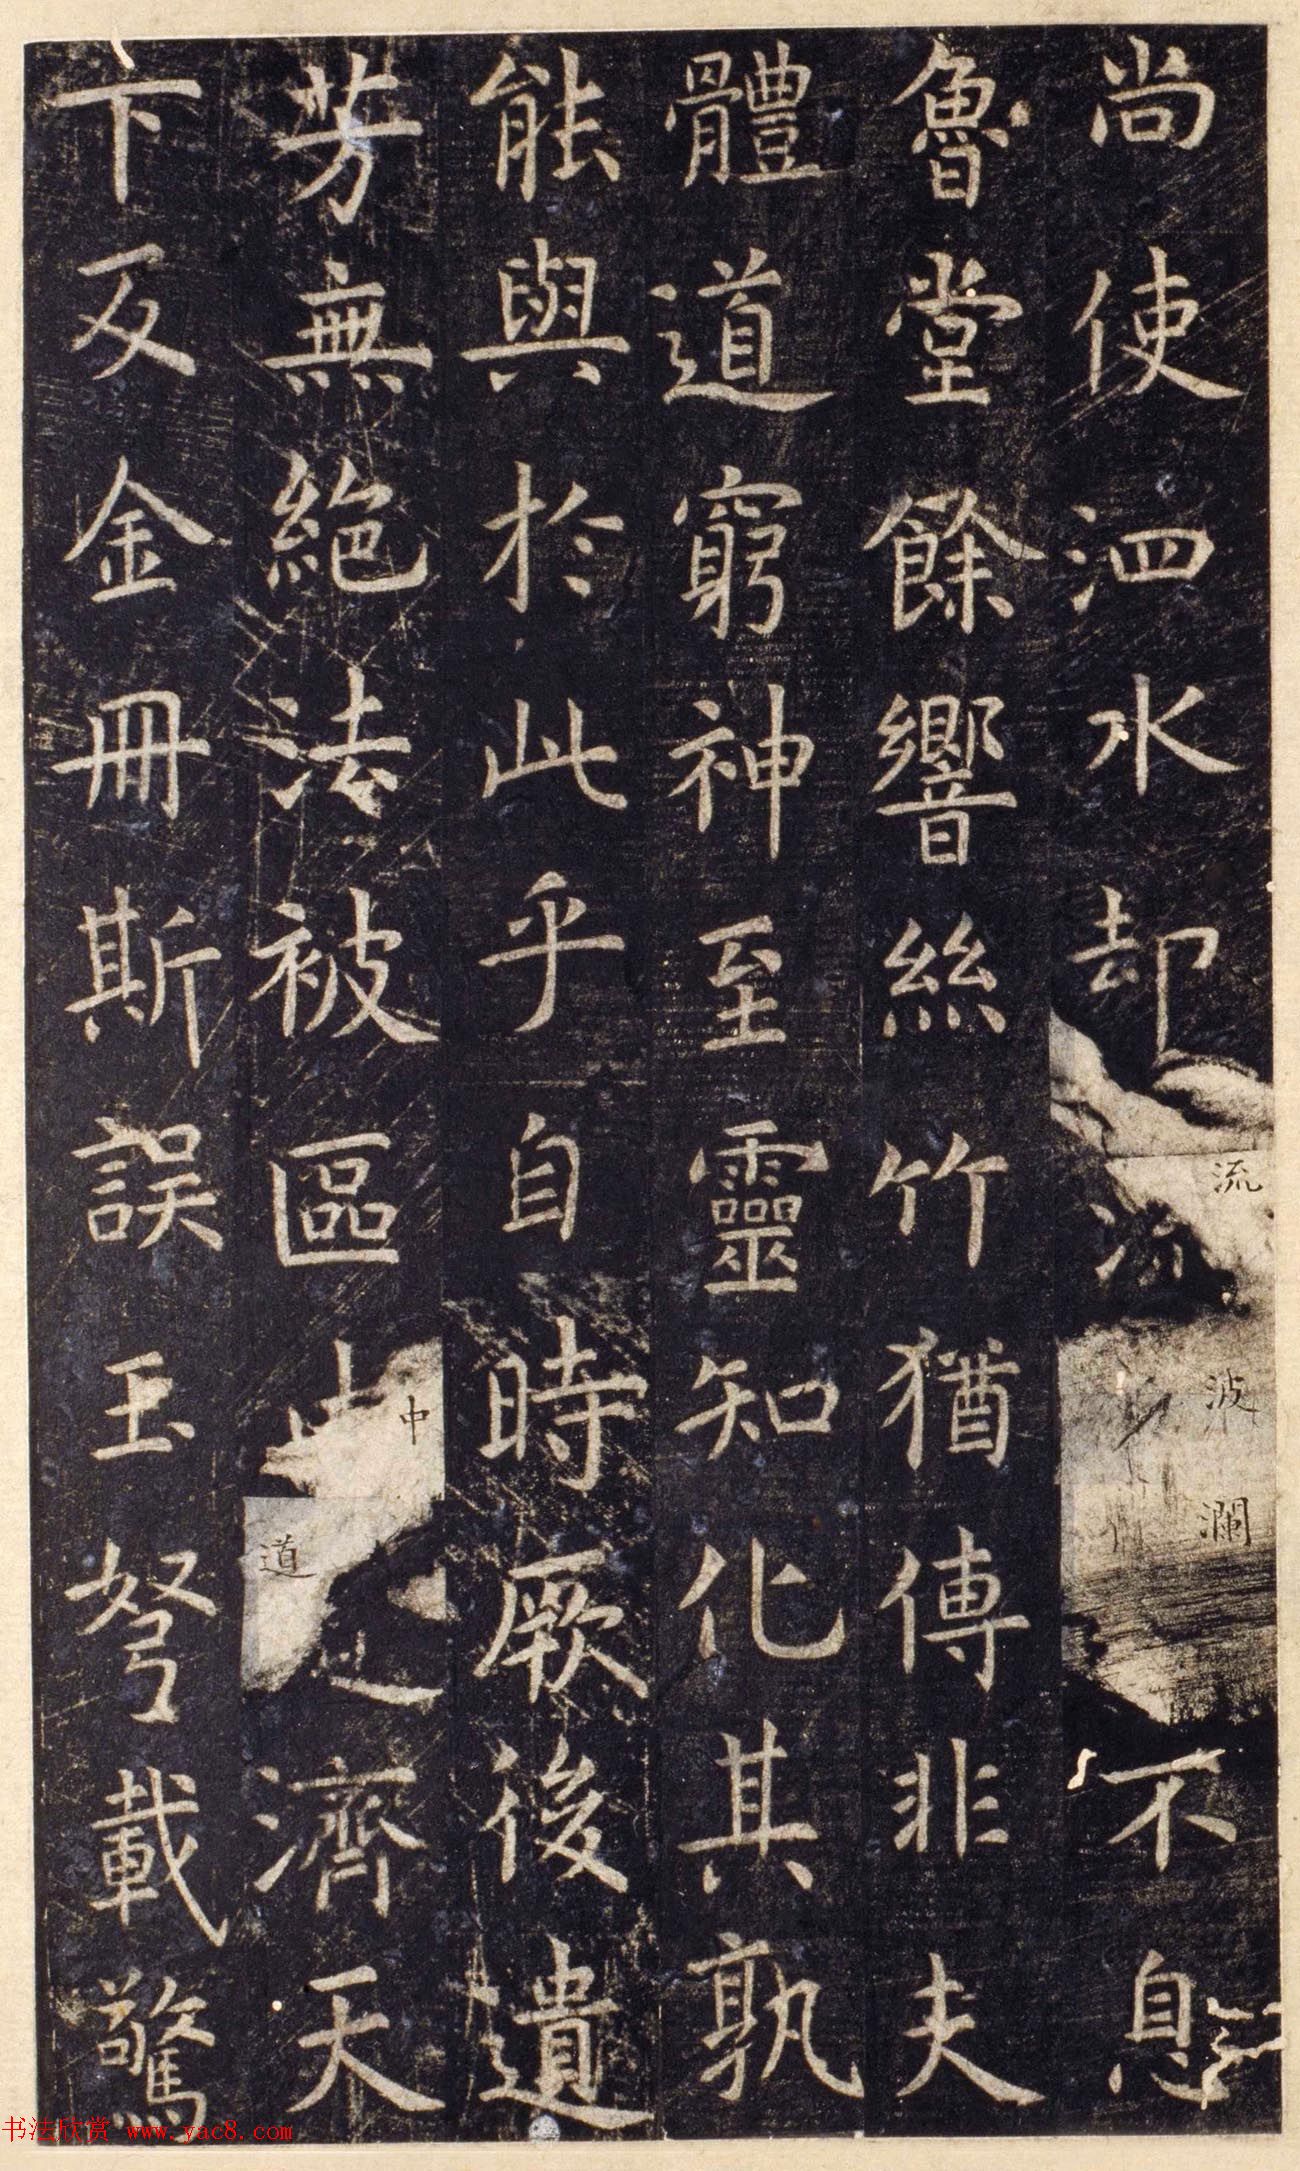 尚使泗水却流波瀾不息
魯堂餘響絲竹猶傳非夫
體道窮神至靈知化其孰
能與於此乎自時厥後遺
芳無絕法被區中道濟天
下及金冊斯誤玉弩載驚
书法欣赏 www.yac8.com